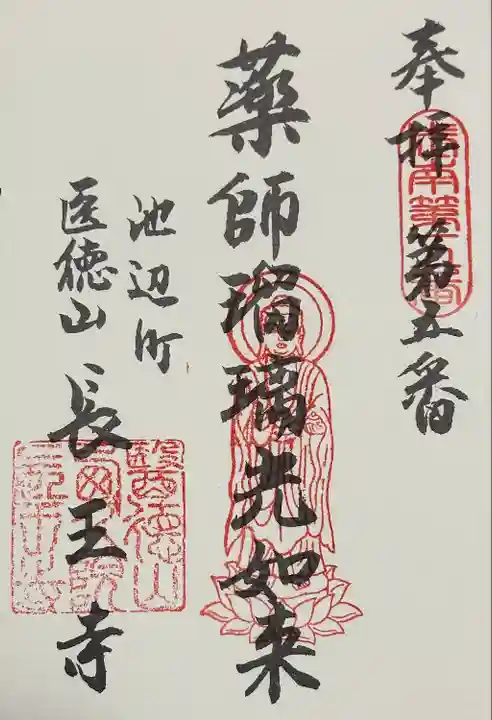 奉拝 第五番
薬師瑠璃光如来
池辺町
医徳山 長王寺
醫徳山